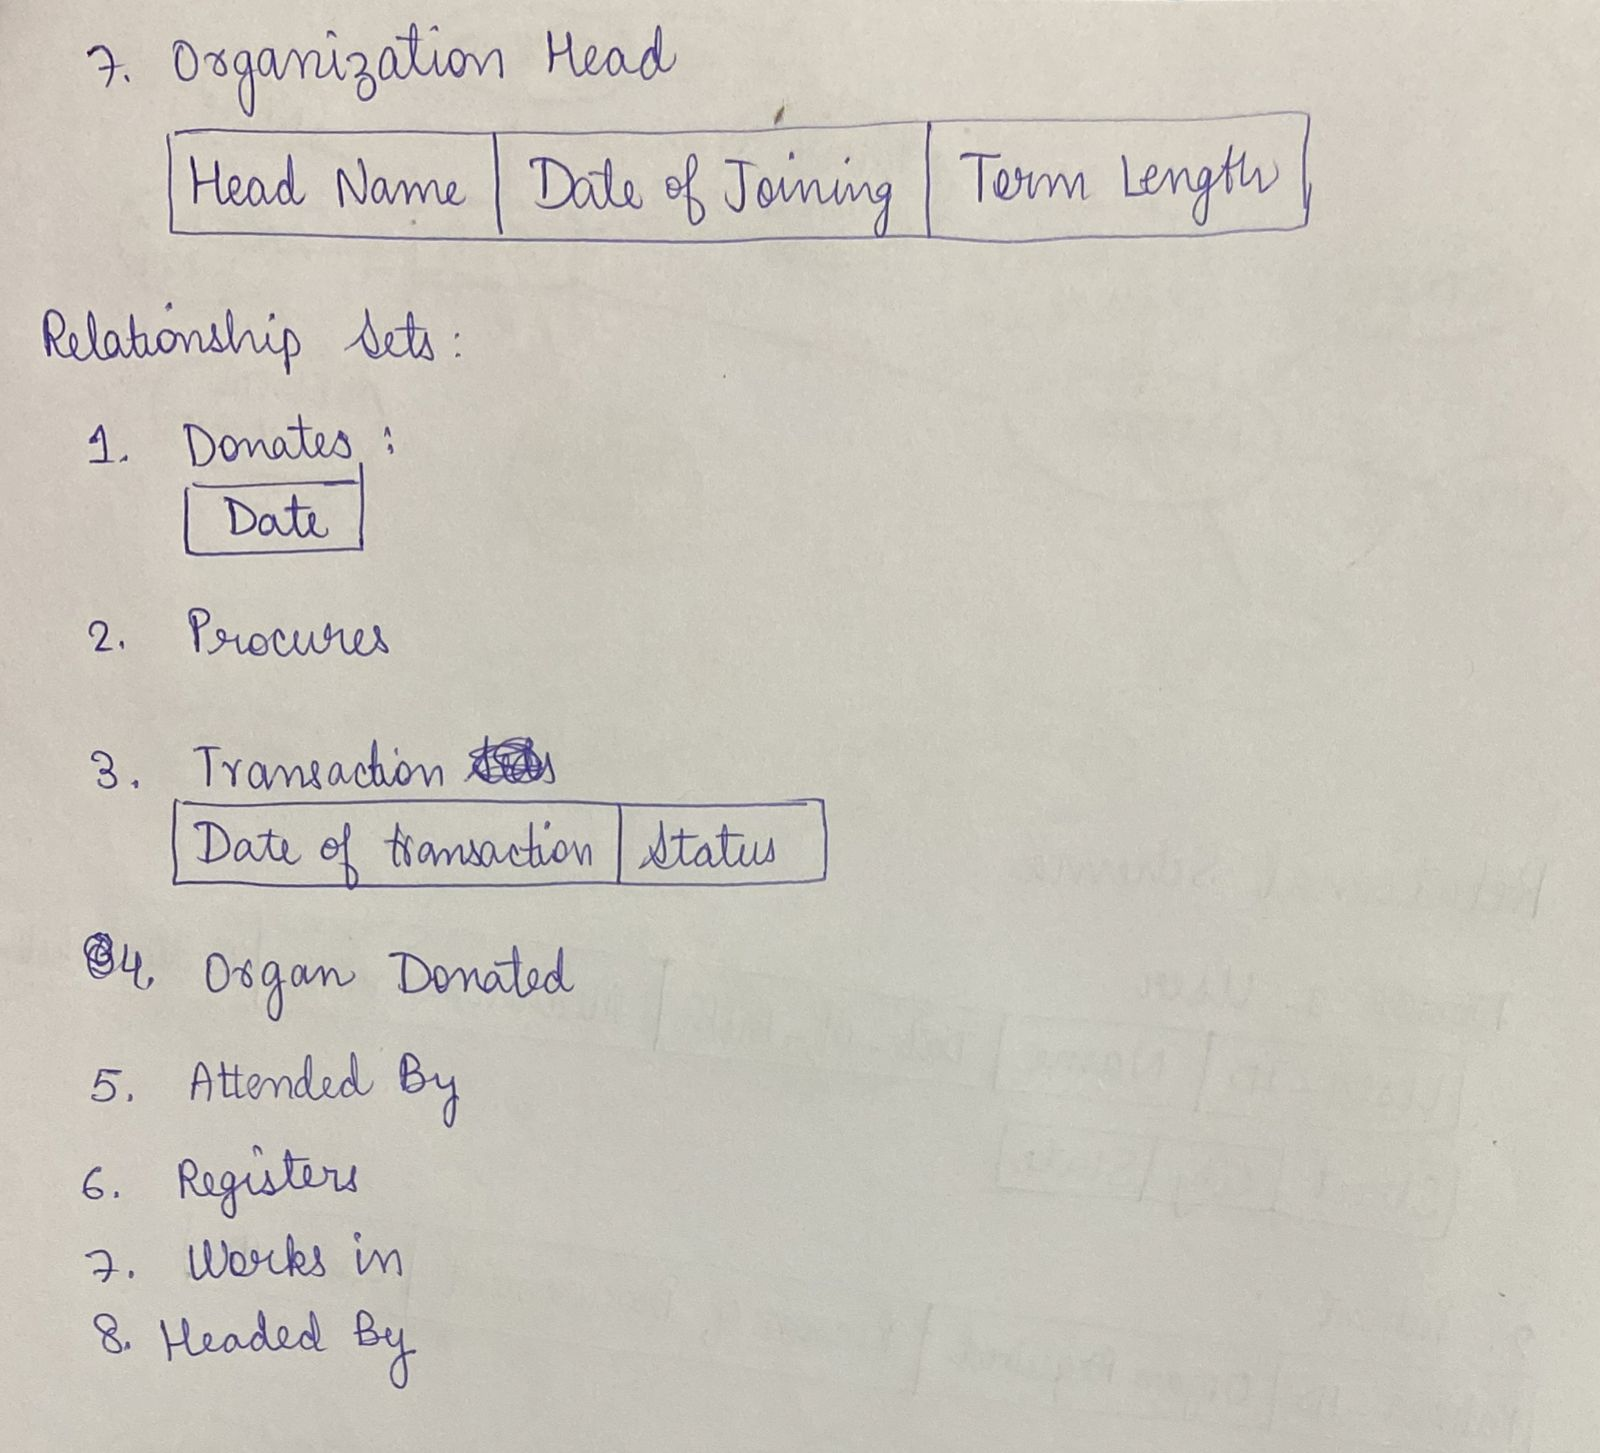 7. Organization Head
Head Name | Date of Joining | Term Length
Relationship Sets:
1. Donates:
Date
2. Procures
3. Transaction
Date of transaction | Status
4. Organ Donated
5. Attended By
6. Registers
7. Works in
8. Headed By